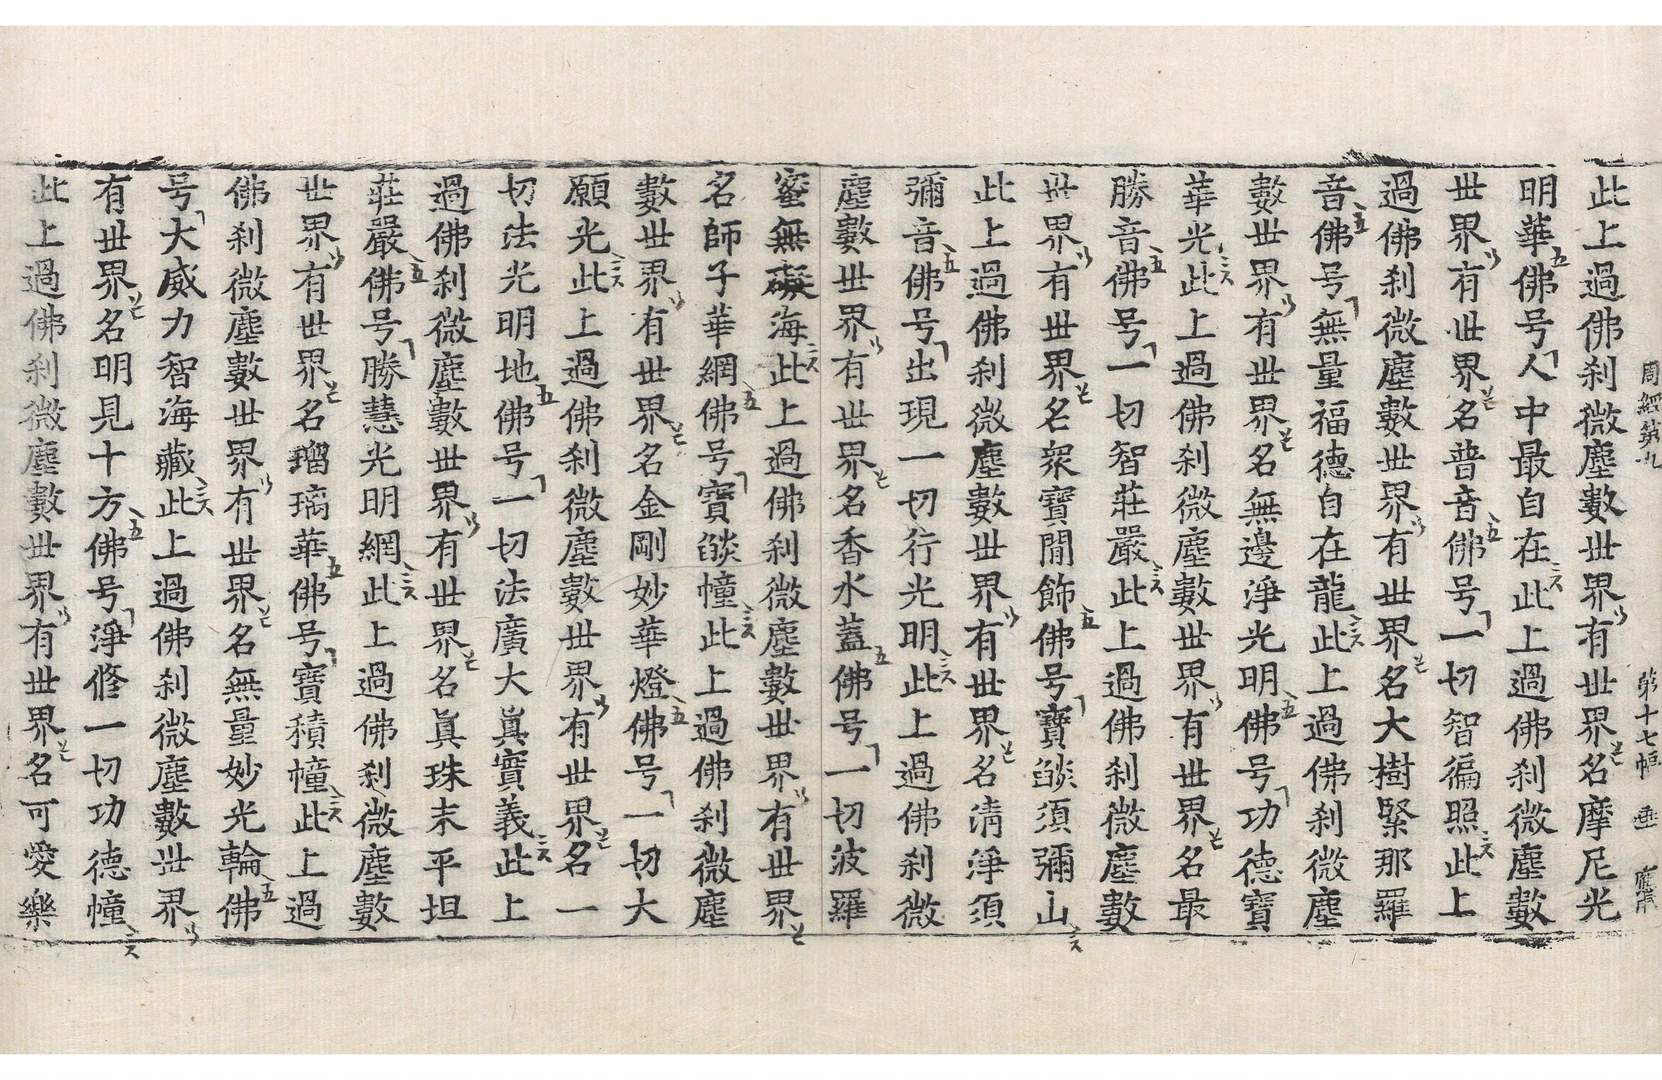 周經第九 第十七幅
此上過佛刹微塵數世界有世界名摩尼光
明華佛号人中最自在此上過佛刹微塵數
世界有世界名普音佛号一切智徧照此上
過佛刹微塵數世界有世界名大樹緊那羅
音佛号無量福德自在龍此上過佛刹微塵
數世界有世界名無邊淨光明佛号功德寶
華光此上過佛刹微塵數世界有世界名最
勝音佛号一切智莊嚴此上過佛刹微塵數
世界有世界名眾寶間飾佛号寶燄須彌山
此上過佛刹微塵數世界有世界名清淨須
彌音佛号出現一切行光明此上過佛刹微
塵數世界有世界名香水蓋佛号一切波羅
蜜無礙海此上過佛刹微塵數世界有世界
名師子華網佛号寶燄幢此上過佛刹微塵
數世界有世界名金剛妙華燈佛号一切大
願光此上過佛刹微塵數世界有世界名一
切法光明地佛号一切法廣大眞實義此上
過佛刹微塵數世界有世界名眞珠末平坦
莊嚴佛号勝慧光明網此上過佛刹微塵數
世界有世界名瑠璃華佛号寶積幢此上過
佛刹微塵數世界有世界名無量妙光輪佛
号大威力智海藏此上過佛刹微塵數世界
有世界名明見十方佛号淨修一切功德幢
此上過佛刹微塵數世界有世界名可愛樂